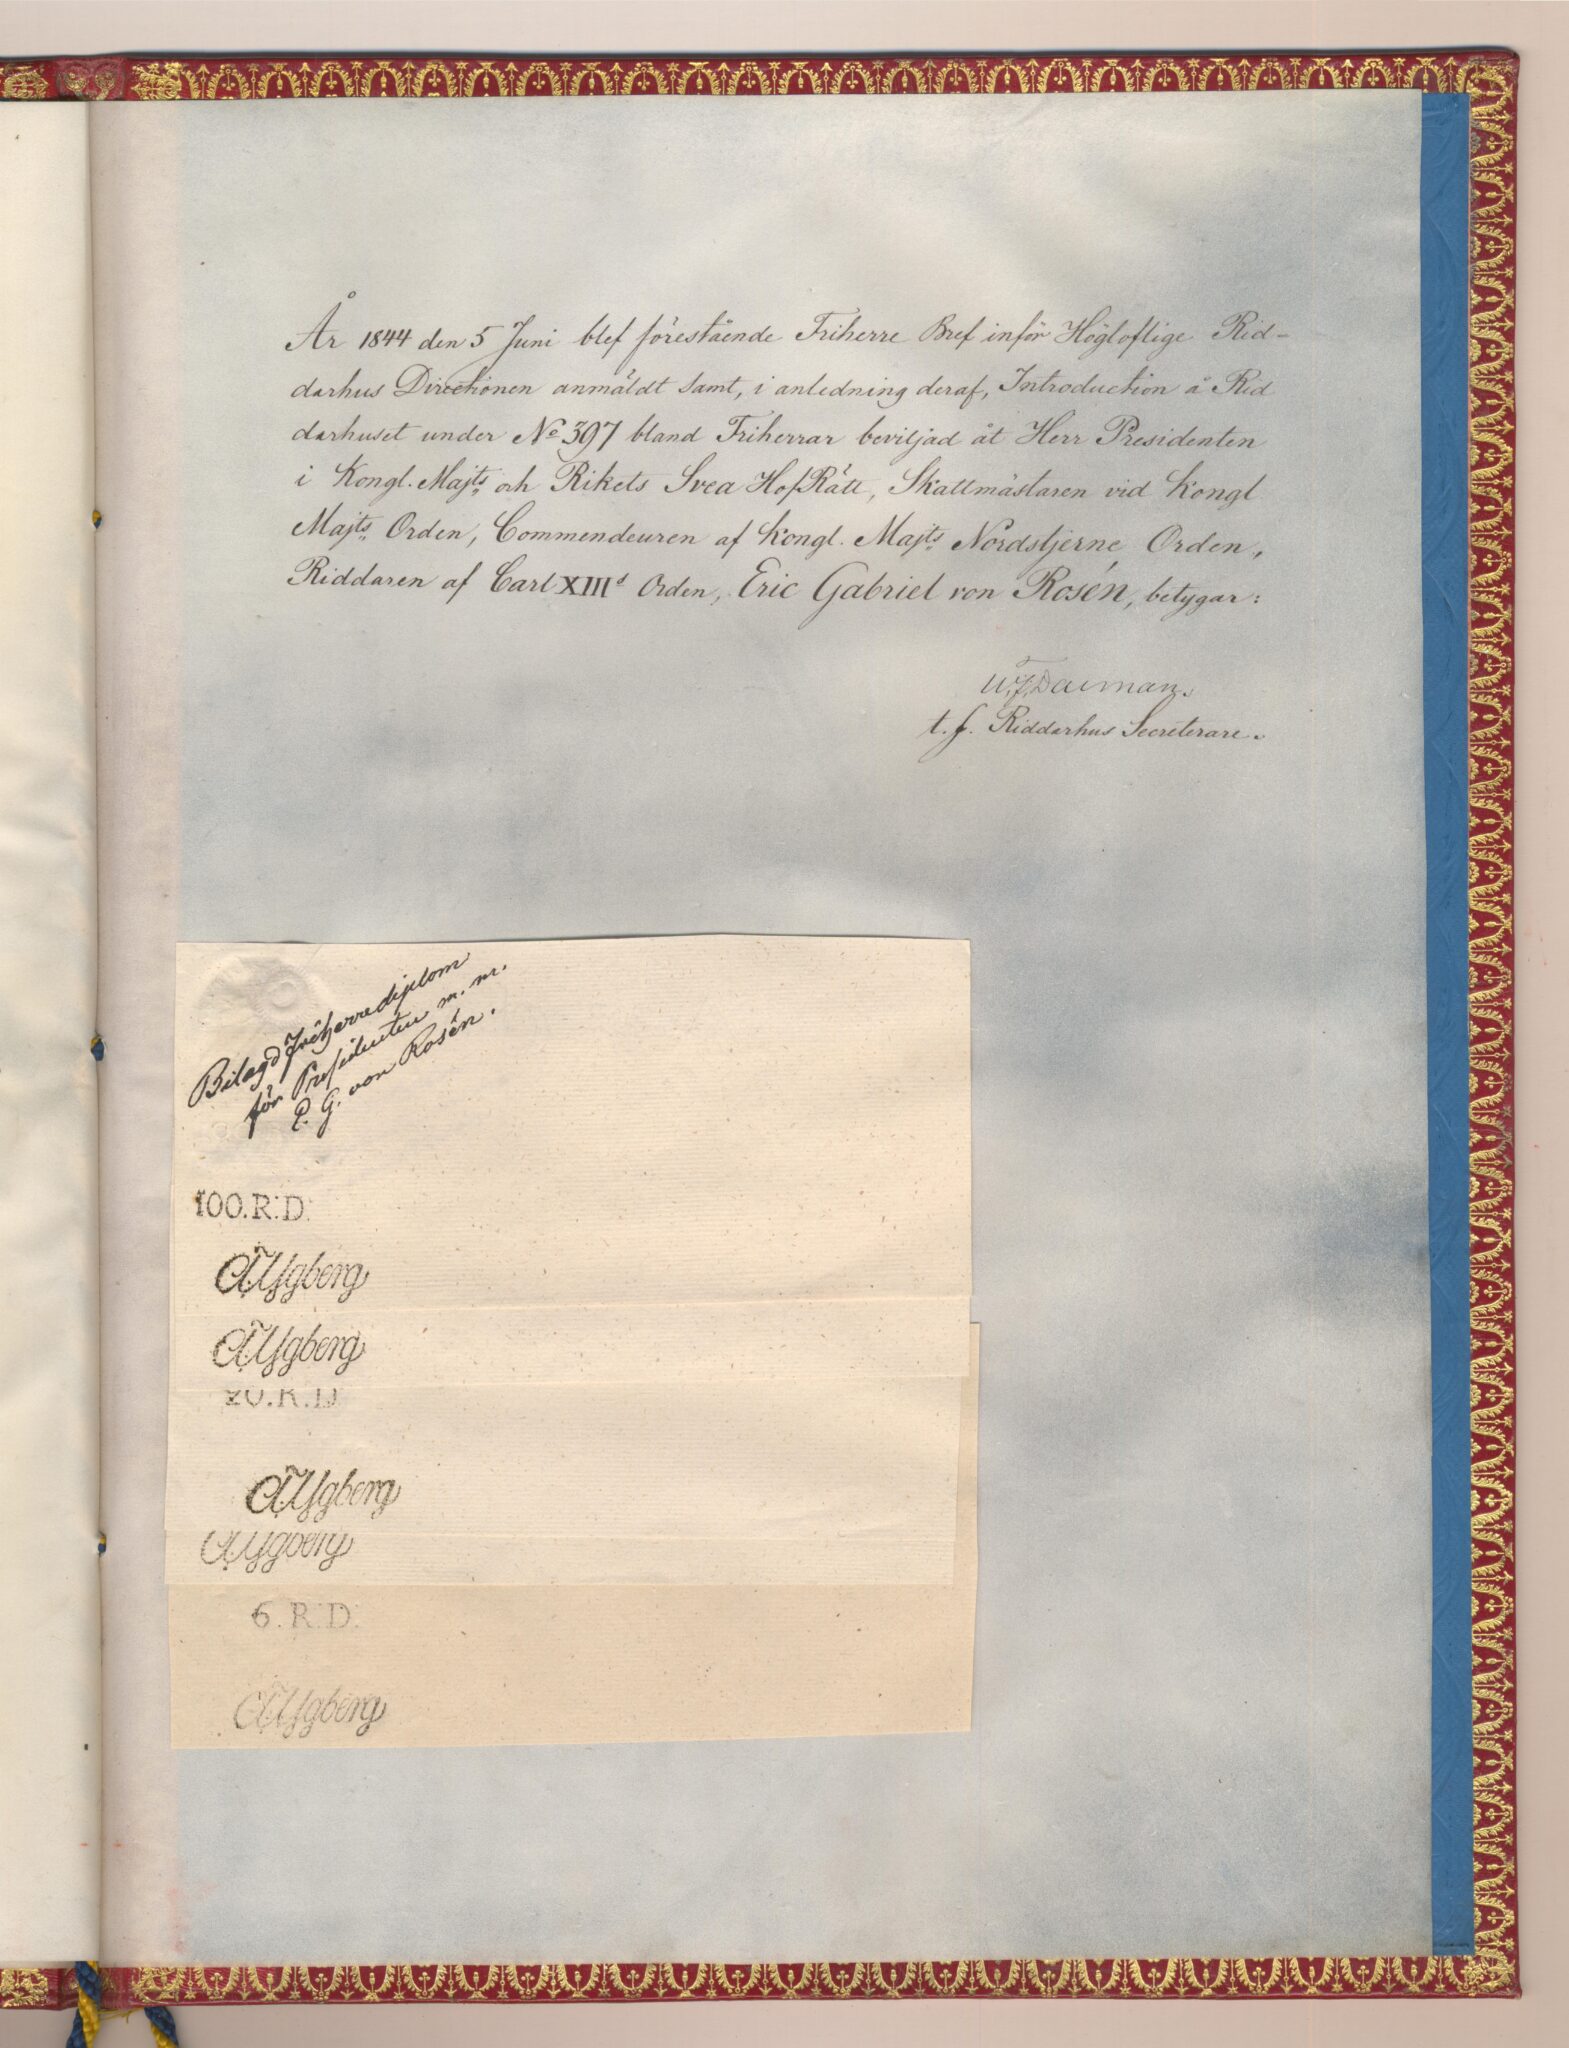 År 1844 den 5 Juni blef förestående Friherre Bref inför Högloflige Rid-
darhus Directionen anmäldt samt, i anledning deraf, Introduction å Rid
darhuset under No 397 bland Friherrar beviljad åt Herr Presidenten
i Kongl. Majts och Rikets Svea HofRätt, Skattmästaren vid Kongl
Majts Orden, Commendeuren af Kongl. Majts Nordstjerne Orden,
Riddaren af Carl XIIIs Orden, Eric Gabriel von Rosén, betygar:
t. f. Riddarhus Secreterare.
Bilagd Friherrediplom
för Presidenten m. m.
E. G. von Rosén.
100. R:D:
20. R:D
6. R:D: